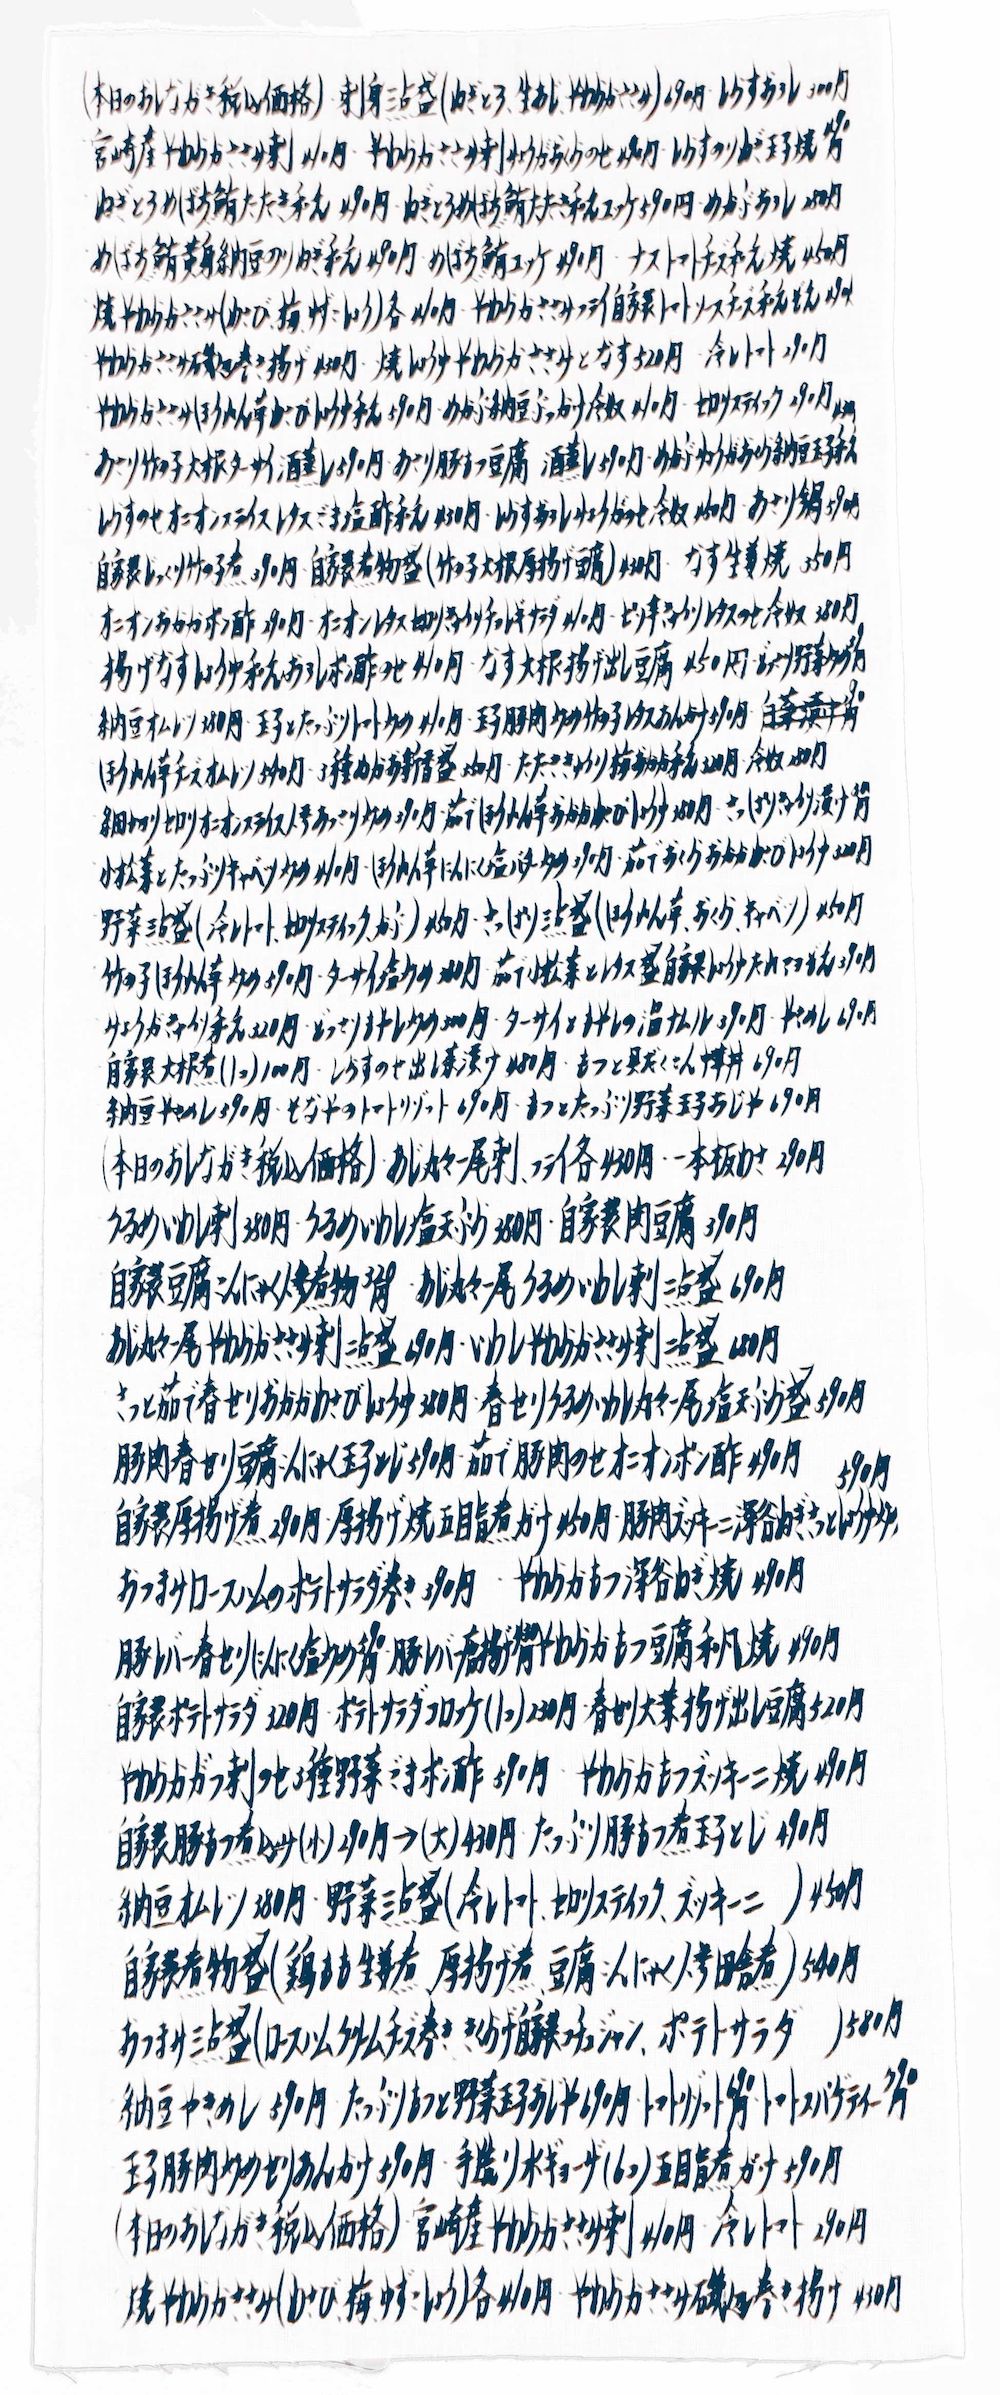 (本日のおしながき税込価格)・刺身三点盛(ねぎとろ、生あじ、やわらかささみ)690円・しらすおろし300円
宮崎産やわらかささみ刺410円・やわらかささみ刺みょうがおくらのせ490円・しらすのりねぎ玉子焼
ねぎとろめばち鮪たたき和え490円・ねぎとろめばち鮪たたき和えユッケ590円・めかぶおろし280円
めばち鮪黄身納豆のりねぎ和え490円・めばち鮪ユッケ490円・ナストマトチーズ和え焼450円
焼やわらかささみ(わさび、梅、ゆずこしょう)各410円・やわらかささみフライ自家製トマトソースチーズ和え
やわらかささみ磯辺巻き揚げ430円・焼しょうゆやわらかささみとなす520円・冷しトマト290円
やわらかささみほうれん草わさびしょうゆ和え590円・めかぶ納豆ぶっかけ冷奴410円・セロリスティック290円
あさり竹の子大根ターサイ酒蒸し590円・あさり豚もつ豆腐 酒蒸し590円・めかぶみょうがおくら納豆玉子和え
しらすのせオニオンスライスレタスごま塩酢和え430円・しらすおろしみょうがのせ冷奴450円・あさり鍋590円
自家製じっくり竹の子煮390円・自家製煮物盛(竹の子大根厚揚げ豆腐)430円・なす生姜焼 350円
オニオンおかかポン酢290円・オニオンレタス細切きゅうりチョレギサラダ410円・ピリ辛きゅうりレタスのせ冷奴380円
揚げなすしょうゆ和えおろしポン酢のせ410円・なす大根揚げ出し豆腐450円・どっさり野菜炒め
納豆オムレツ380円・玉子とたっぷりトマト炒め410円・玉子豚肉炒め竹の子レタスあんかけ590円
ほうれん草チーズオムレツ540円・3種めかぶお新香盛350円・たたききゅうり梅おかか和え320円・冷奴280円
細切りセロリオニオンスライス人参あっさり炒め390円・茹でほうれん草おかかわさびしょうゆ380円・さっぱりきゅうり漬け
小松菜とたっぷりキャベツ炒め410円・ほうれん草にんにく塩バター炒め390円・茹でおくらおかかわさびしょうゆ320円
野菜三点盛(冷しトマト、セロリスティック、かぶ)450円・さっぱり三点盛(ほうれん草、おくら、キャベツ)450円
竹の子ほうれん草炒め590円・ターサイ塩炒め380円・茹で小松菜とレタス盛自家製しょうゆたれマヨ和え390円
みょうがきゅうり和え320円・どっさりもやし炒め300円・ターサイともやしの温ナムル390円・やきめし690円
自家製大根煮(1コ)100円・しらすのせ出し茶漬け480円・もつと具だくさん中華丼690円
納豆やきめし590円・せなやのトマトリゾット690円・もつとたっぷり野菜玉子おじや690円
(本日のおしながき税込価格)・あじ丸々一尾刺、フライ各430円・一本板わさ290円
うるめいわし刺380円・うるめいわし塩天ぷら380円・自家製肉豆腐390円
自家製豆腐こんにゃく人参煮物・あじ丸々一尾うるめいわし刺二点盛690円
あじ丸々一尾やわらかささみ刺二点盛690円・いわしやわらかささみ刺二点盛680円
さっと茹で春せりおかかわさびしょうゆ380円・春せりうるめいわし丸々一尾塩天ぷら盛590円
豚肉春せり豆腐こんにゃく玉子とじ590円・茹で豚肉のせオニオンポン酢490円 590円
自家製厚揚げ煮290円・厚揚げ焼五目旨煮がけ450円・豚肉ズッキーニ深谷ねぎさっとしょうゆ炒め
おつまみロースハムのポテトサラダ巻き390円・やわらかもつ深谷ねぎ焼490円
豚レバー春せりにんにく塩炒め・豚レバー唐揚げ・やわらかもつ豆腐和風焼490円
自家製ポテトサラダ320円・ポテトサラダコロッケ(1コ)230円・春せり大葉揚げ出し豆腐520円
やわらかガツ刺のせ3種野菜ごまポン酢590円・やわらかもつズッキーニ焼490円
自家製豚もつ煮込み(小)290円→(大)430円・たっぷり豚もつ煮玉子とじ490円
納豆オムレツ380円・野菜三点盛(冷しトマト、セロリスティック、ズッキーニ)450円
自家製煮物盛(鶏もも生姜煮、厚揚げ煮、豆腐こんにゃく人参田舎煮)540円
おつまみ三点盛(ロースハムクリームチーズ巻き、きくらげ自家製コチュジャン、ポテトサラダ)580円
納豆やきめし590円・たっぷりもつと野菜玉子おじや690円・トマトリゾット690円・トマトスパゲティー790円
玉子豚肉炒めせりあんかけ590円・手造り水ギョーザ(6コ)五目旨煮がけ590円
(本日のおしながき税込価格)・宮崎産やわらかささみ刺410円・冷しトマト290円
焼やわらかささみ(わさび、梅、ゆずこしょう)各410円・やわらかささみ磯辺巻き揚げ430円